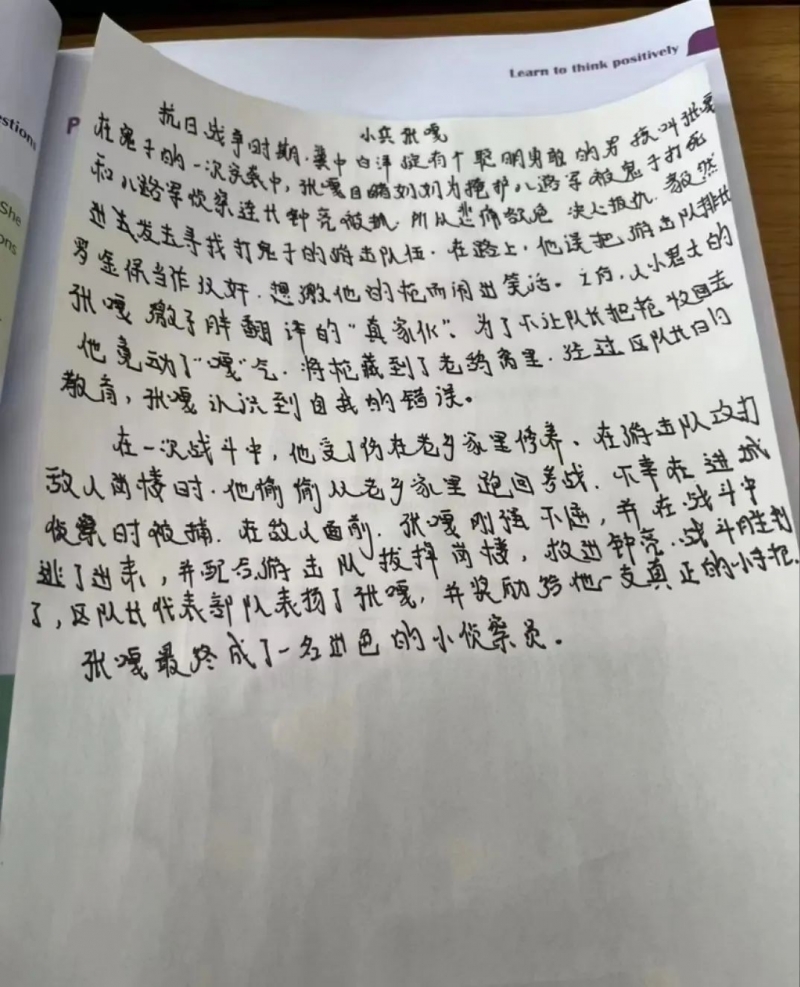 Learn to think positively
stion
She
ons
P
小兵张嘎
抗日战争时期,冀中白洋淀有个聪明勇敢的男孩叫张嘎
在鬼子的一次突袭中,张嘎目睹奶奶为掩护八路军被鬼子打死
和八路军侦察连长钟亮被抓,所以悲愤欲绝 决心报仇,毅然
出去发去寻找打鬼子的游击队伍.在路上,他误把游击队排长
罗金保当作汉奸,想缴他的枪而闹出笑话。之后,人小鬼大的
张嘎 缴了胖翻译的“真家伙”.为了不让队长把枪收回去
他竟动了“嘎”气.将枪藏到了老鸹窝里.经过区队长的
教育,张嘎认识到自我的错误。
在一次战斗中,他受了伤在老乡家里修养、在游击队攻打
敌人岗楼时.他偷偷从老乡家里跑回参战.不幸在进城
侦察时被捕.在敌人面前.张嘎刚强不屈,并在战斗中
逃了出来,并配合游击队拔掉岗楼,救出钟亮.战斗胜利
了,区队长代表部队表扬了张嘎,并奖励给他一支真正的小手枪.
张嘎最终成了一名出色的小侦察员。